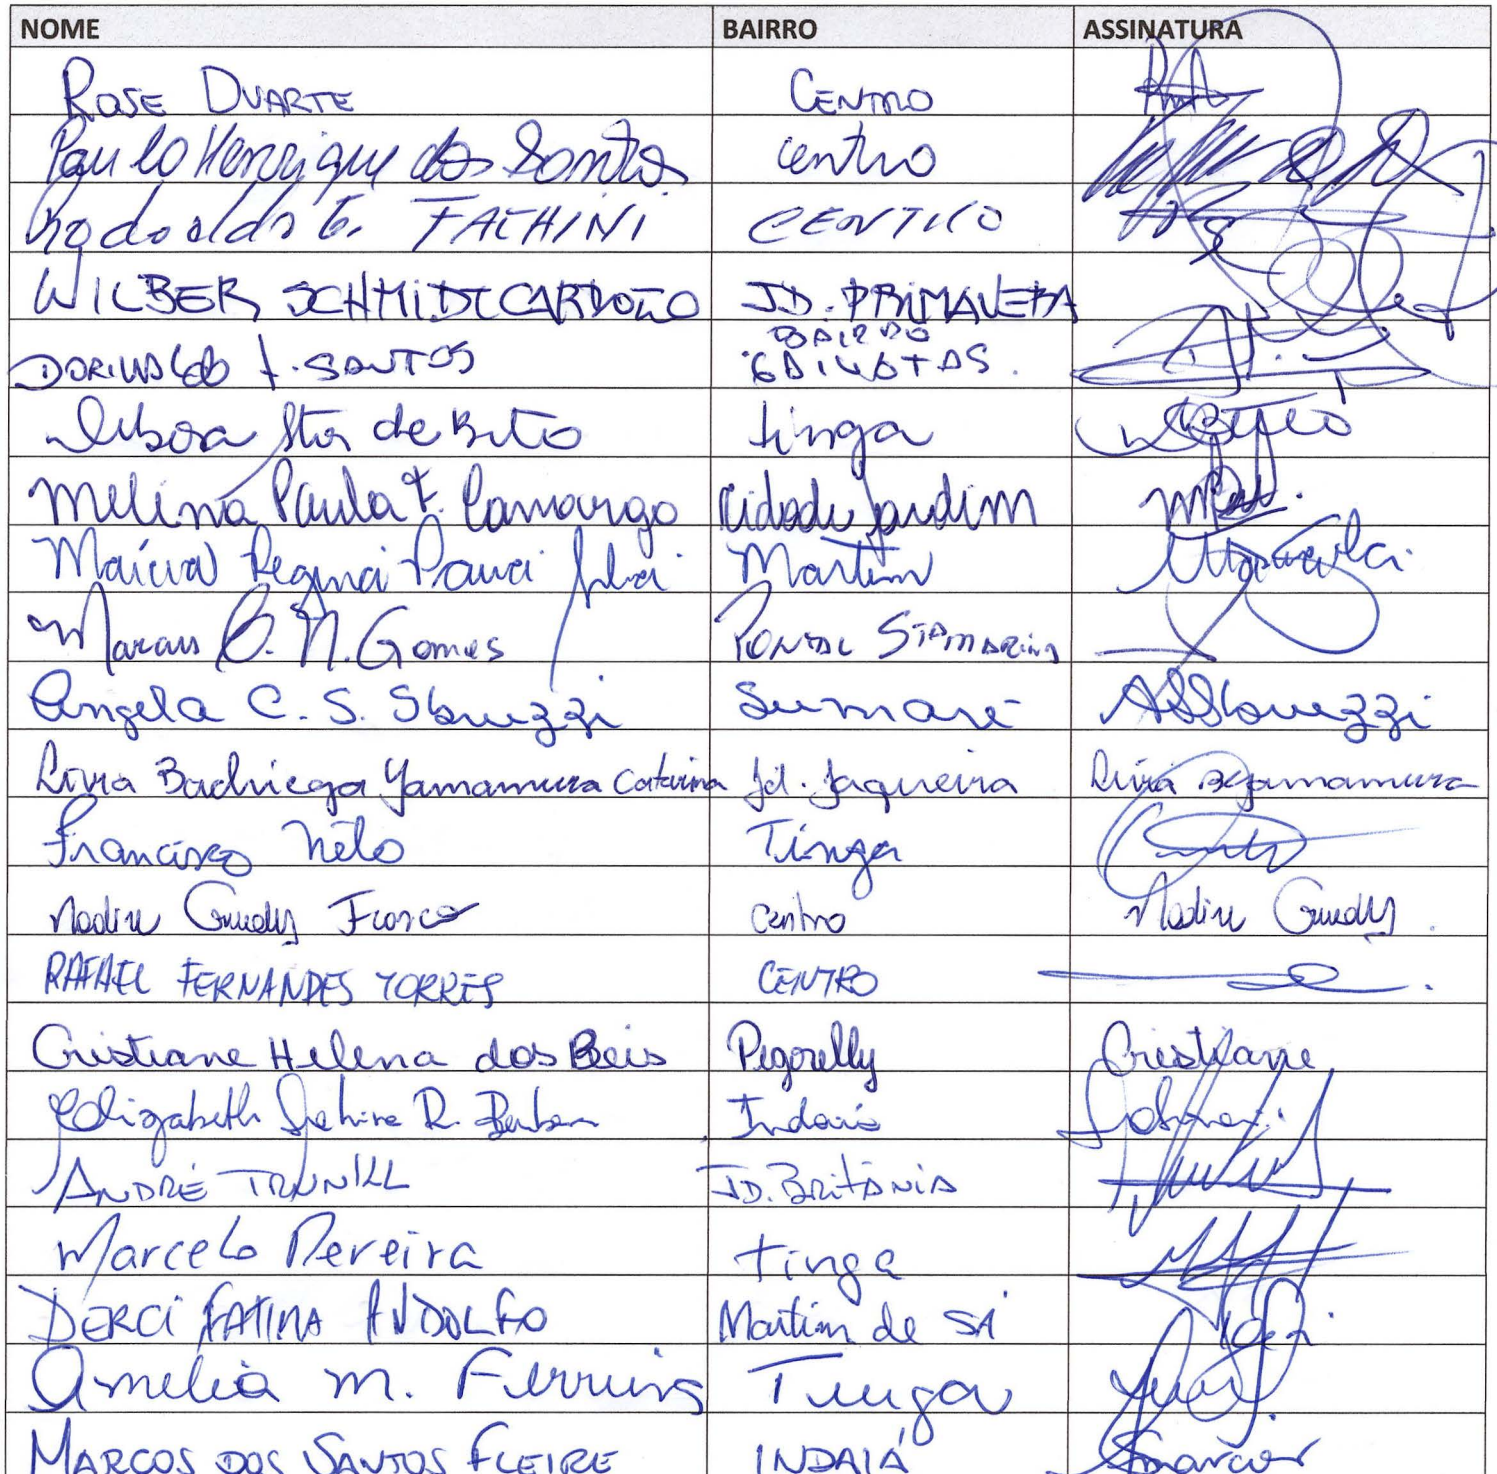 NOME BAIRRO ASSINATURA
ROSE DUARTE CENTRO
Paulo Henrique dos Santos centro
Rodoaldo G. FACHINI CENTRO
WILBER SCHMIDT CARDOZO JD. PRIMAVERA
BAIRRO
DORIVALDO F. SANTOS GAIVOTAS.
Debora Stos de Brito tinga
Melina Paula F. Camargo Cidade jardim
Márcia Regina Paiva Silva Martim
Marcus C. N. Gomes PONTAL STA MARINA
Angela C. S. Sbruzzi Sumaré ASSbruzzi
Livia Badriega Yamamura Catarina Jd. Jaqueira Livia BYamamura
Francisco Neto Tinga
Nadir Guedes Centro Nadir Guedes.
RAFAEL FERNANDES TORRES CENTRO
Cristiane Helena dos Reis Pegorelly Cristiane
Elizabeth Sabine R. Indaiá
ANDRÉ JD. BRITÂNIA
Marcelo Pereira tinga
DERCI FATIMA ANDOLFO Martim de SÁ
Amelia m. Ferreira Tinga
MARCOS DOS SANTOS FLEIRE INDAIÁ